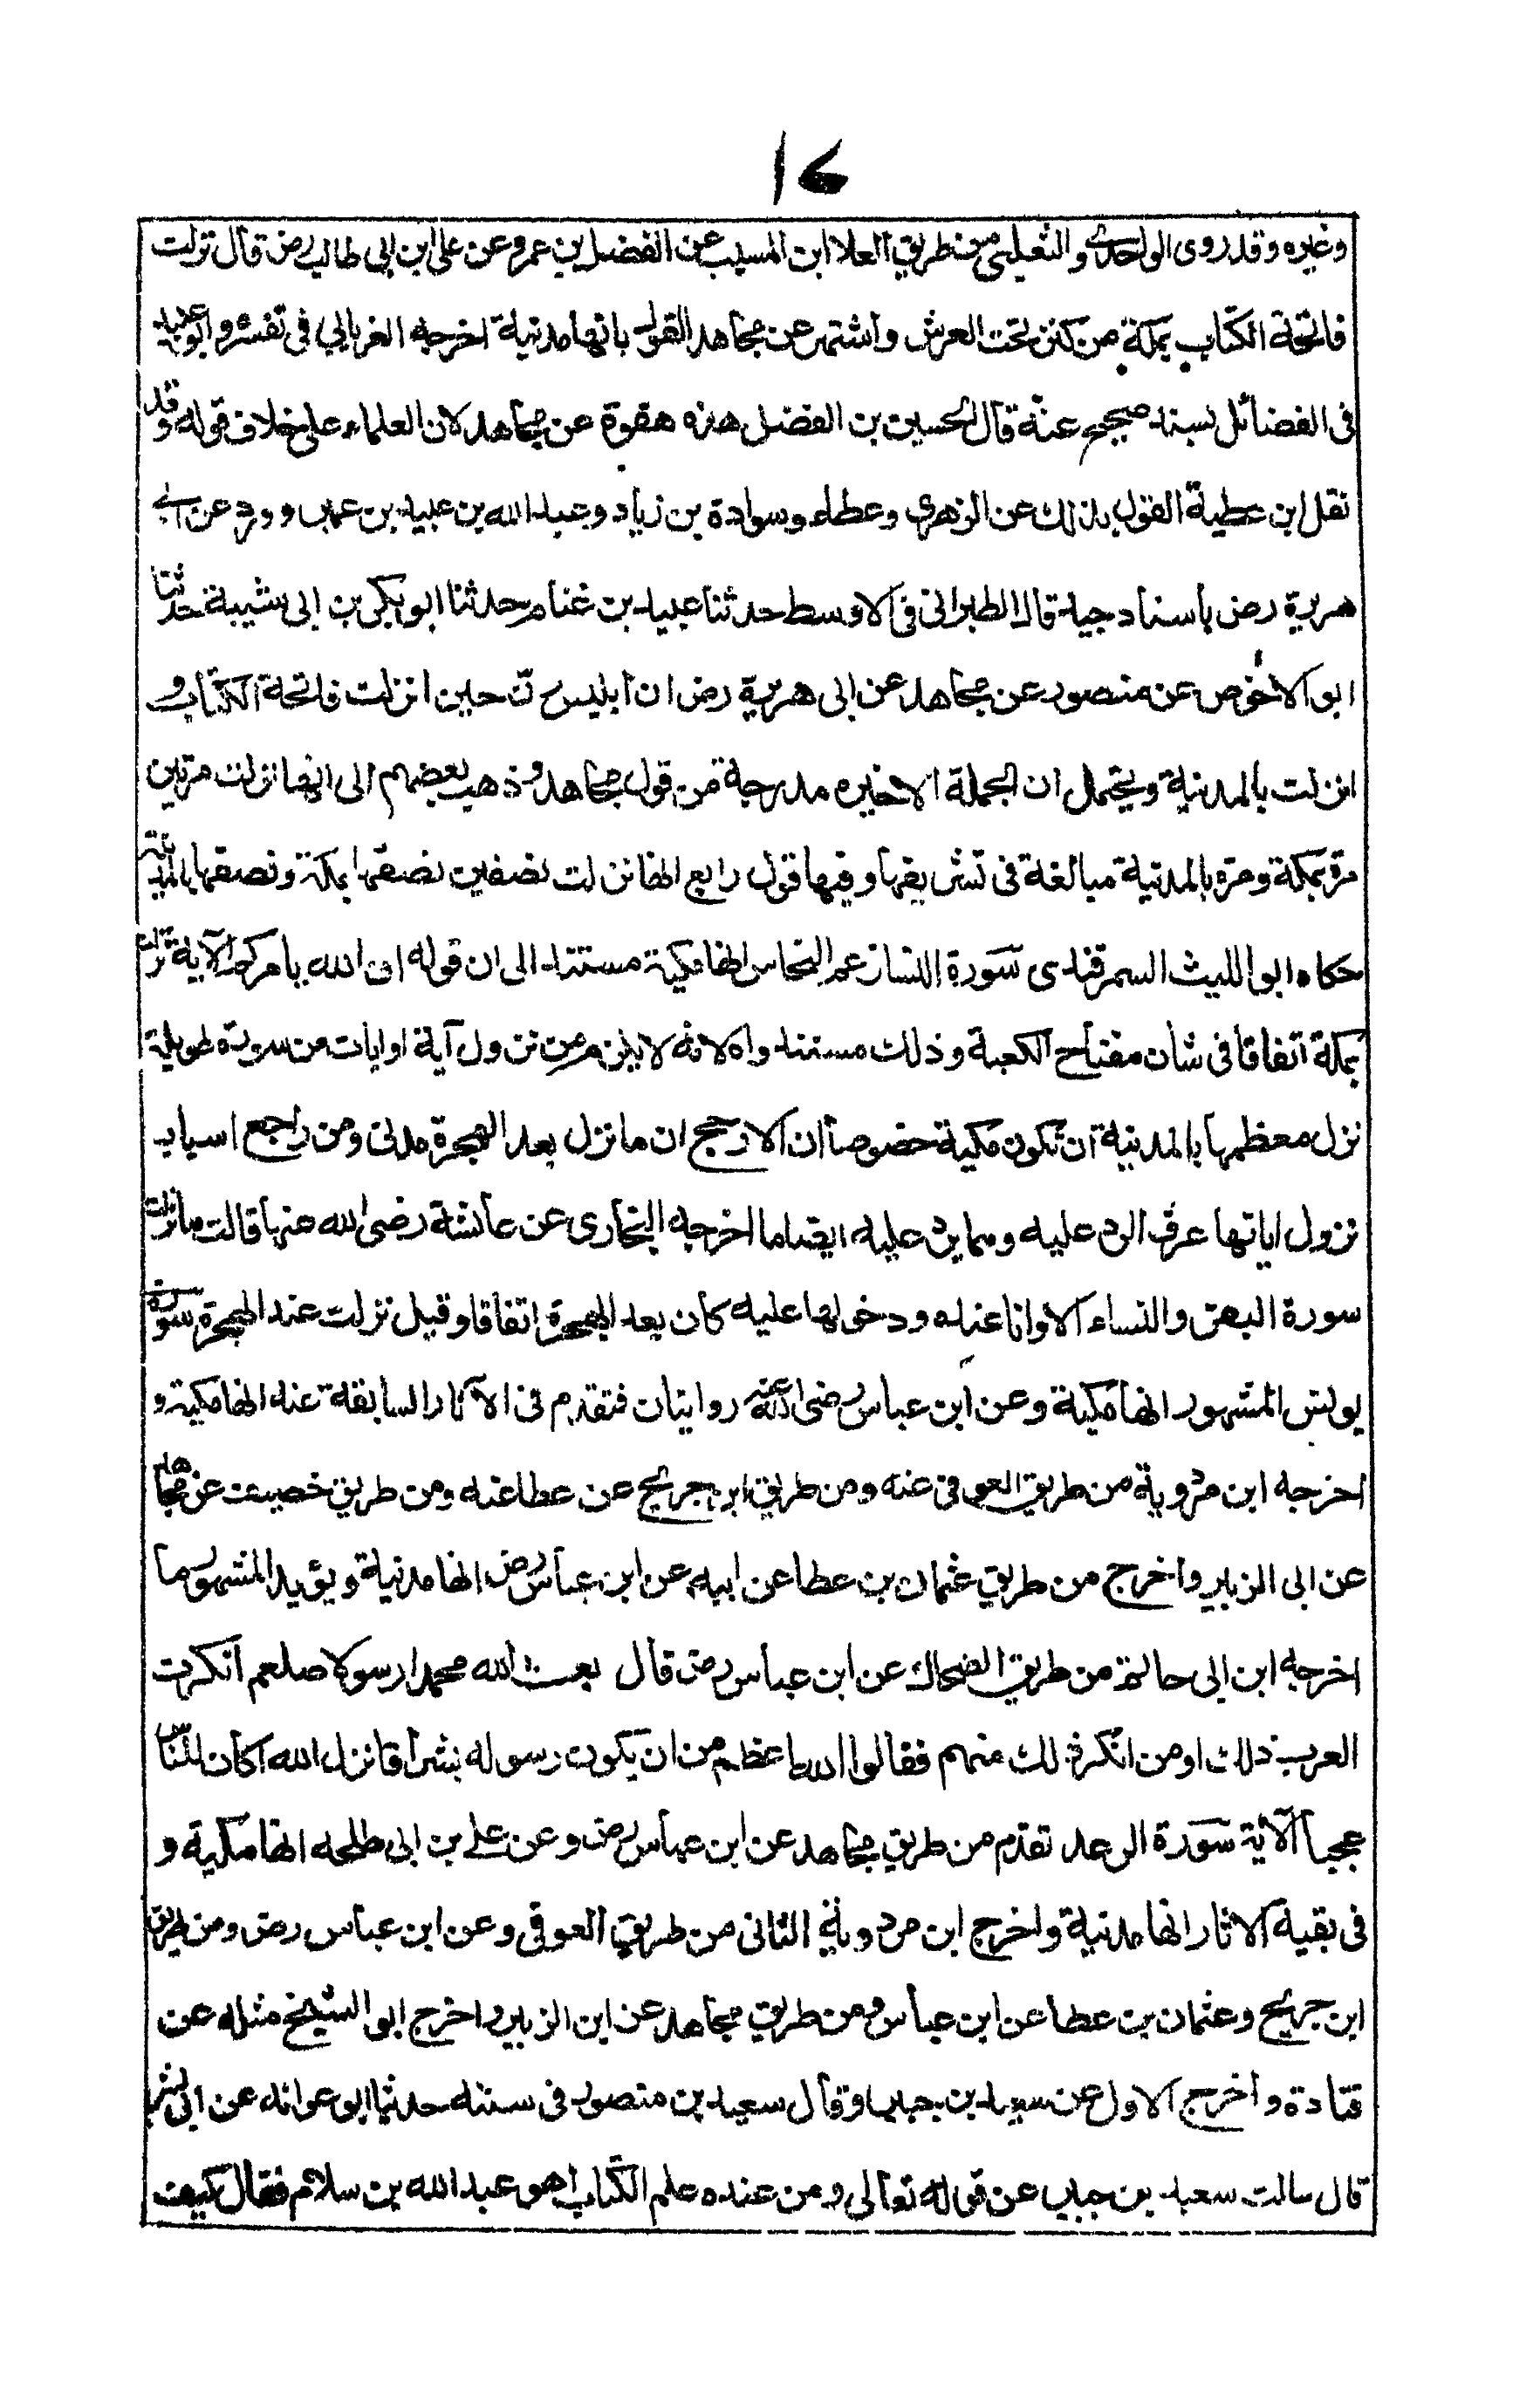 ١٤
وغيره وقد روى الواحدي والثعلبي من طريق العلا ابن المسيب عن الفضيل بن عمرو عن على ابن ابي طالب رض قال نزلت
فاتحة الكتاب بمكة من كنز تحت العرش واشتهر عن مجاهد القول بانها مدنية اخرجه الفريابي في تفسره وابو عبيد
في الفضائل بسند صحيح عنه قال الحسين بن الفضل هذه هفوة عن مجاهد لان العلماء على خلاف قوله وقد
نقل ابن عطية القول بذلك عن الزهري وعطاء وسوادة بن زياد وعبد الله بن عبيد بن عمير وورد عن ابي
هريرة رض باسناد جيد قال الطبراني في الاوسط حدثنا عبيد بن غنام حدثنا ابو بكر بن ابي شيبة حدثنا
ابو الاحوص عن منصور عن مجاهد عن ابي هريرة رض ان ابليس رن حين انزلت فاتحة الكتاب و
انزلت بالمدنية ويحتمل ان الجملة الاخيره مدرجة من قول مجاهد وذهب بعضهم الى انها نزلت مرتين
مرة بمكة ومرة بالمدنية مبالغة في تشريفها وفيها قول رابع انها نزلت نصفين نصفها بمكة ونصفها بالمدينة
حكاه ابو الليث السمرقندى سورة النساء زعم النحاس انها مكية مستندا الى ان قوله ان الله يامركم الآية نزلت
بمكة اتفاقا في شان مفتاح الكعبة وذلك مستند واه لانه لا يلزم من نزول آية او ايات من سورة طويلة
نزل معظمها بالمدنية ان تكون مكية خصوصا ان الارجح ان ما نزل بعد الهجرة مدنى ومن راجع اسباب
نزول اياتها عرف الرد عليه ومما يرد عليه ايضا ما اخرجه البخارى عن عائشة رضى الله عنها قالت ما نزلت
سورة البقرة والنساء الا وانا عنده ودخولها عليه كان بعد الهجرة اتفاقا وقيل نزلت عند الهجرة سورة
يونس المشهور انها مكية وعن ابن عباس رضى الله عنه روايتان فتقدم في الآثار السابقة عنه انها مكية و
اخرجه ابن مردوية من طريق العوفي عنه ومن طريق ابن جريج عن عطا عنه ومن طريق خصيف عن مجاهد
عن ابى الزبير واخرج من طريق عثمان بن عطا عن ابيه عن ابن عباس رض انها مدنية ويؤيد المشهور ما
اخرجه ابن ابي حاتم من طريق الضحاك عن ابن عباس رض قال بعث الله محمدا رسولا صلعم انكرت
العرب ذلك او من انكر ذلك منهم فقالوا الله اعظم من ان يكون رسوله بشرا فانزل الله اكان للناس
عجبا الآية سورة الرعد تقدم من طريق مجاهد عن ابن عباس رض وعن على بن ابى طلحه انها مكية و
في بقية الاثار انها مدنية واخرج ابن مردوية الثانى من طريق العوفي وعن ابن عباس رض ومن طريق
ابن جريج وعثمان بن عطا عن ابن عباس ومن طريق مجاهد عن ابن الزبير واخرج ابو الشيخ مثله عن
قتادة واخرج الاول عن سعيد بن جبير وقال سعيد بن منصور في سننه حدثنا ابو عوانه عن ابي بشر
قال سالت سعيد بن جبير عن قوله تعالى ومن عنده علم الكتاب اهو عبد الله بن سلام فقال كيف